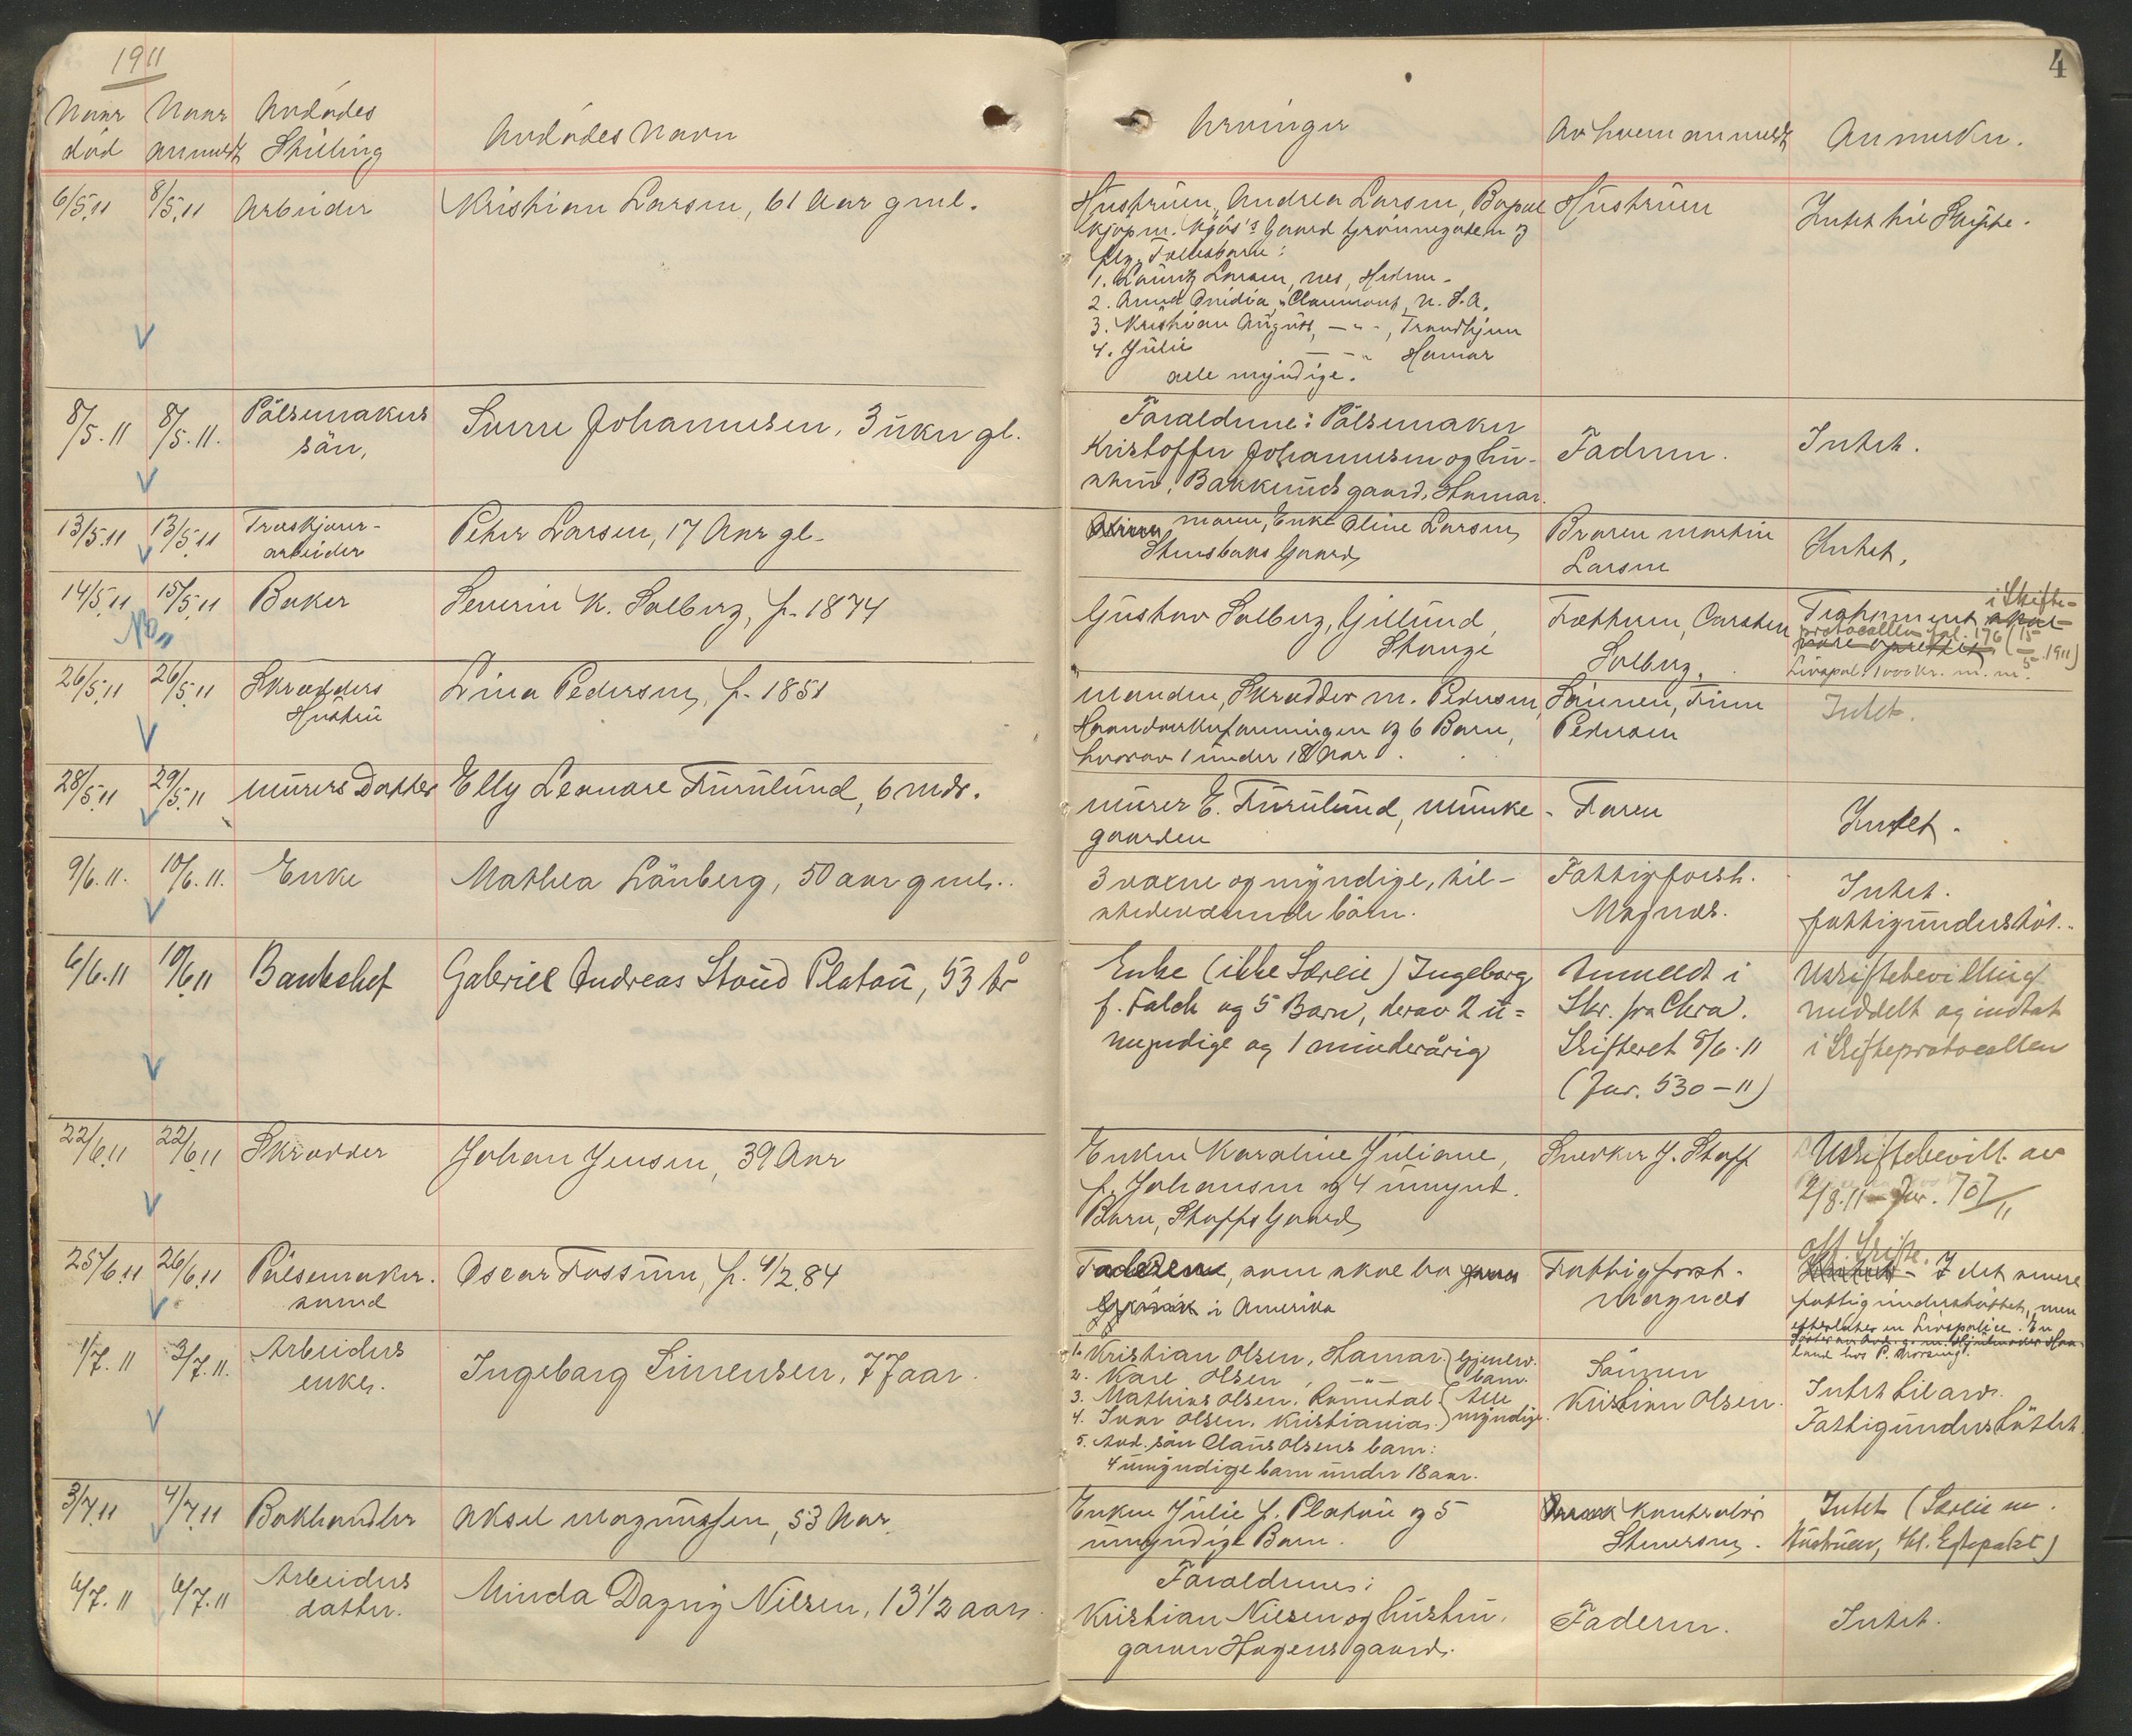 1911
4
Naar død
Naar anmeldt
Avdødes Stilling
Avdødes Navn
Arvinger
Av hvem anmeldt
Anmerkn.
6/5.11 8/5.11 Arbeider Kristian Larsen, 61 Aar gml.
Hustruen, Andrea Larsen, Bopæl
Kjøpm. Kjøs's Gaard Grønnegaten og
flg. Fællesbarn:
1. Lauritz Larsen, Nes, Hedem.
2. Anna Ovidia, " Claremont, N. S. A.
3. Kristian August, — " —, Trondhjem
4. Julie — " — Hamar
alle myndige.
Hustruen
Intet til Skifte.
8/5.11 8/5.11. Pølsemakers
søn,
Sverre Johannesen, 3 uker gl.
Foraldrene: Pølsemaker
Kristoffer Johannesen og hu-
stru, Bakkerudsgaard, Hamar.
Faderen.
Intet.
13/5.11 13/5.11 Træskjærer-
arbeider
Peter Larsen, 17 Aar gl.
Moren, Enke Oline Larsen,
Stensbaks Gaard
Broren Martin
Larsen
Intet.
14/5.11 15/5.11 Baker Severin K. Solberg, f. 1874
No "
Gustav Solberg, Gillund,
Stange
Fætteren, Carsten
Solberg.
Testament i Skifte-
protocollen fol. 176 (15/5 1911)
Livspol. 1000 kr. m. m.
26/5.11 26/5.11 Skrædders
Hustru
Lina Pedersen, f. 1851
Manden, Skrædder M. Pedersen,
Haandverkerforeningen og 6 Barn,
hvorav 1 under 18 Aar.
Sønnen, Finn
Pedersen
Intet.
28/5.11 29/5.11 Murers Datter Elly Leonore Furulund, 6 mdr.
Murer E. Furulund, Munke-
gaarden
Faren
Intet.
9/6.11. 10/6.11. Enke Mathea Lönberg, 50 aar gml.
3 voxne og myndige, til-
stedeværende børn.
Fattigforst.
Magnæs.
Intet.
fattigunderstöt.
6/6.11 10/6.11 Bankchef Gabriel Andreas Stoud Platou, 53 År
Enke (ikke Særeie) Ingeborg
f. Falch og 5 Barn, derav 2 u=
myndige og 1 minderårig
Anmeldt i
Skr. fra Chra.
Skifteret 8/6.11
(Jur. 530 - 11)
Uskiftebevilling
meddelt og indtat
i Skifteprotocollen
22/6.11 22/6.11 Skrædder Johan Jensen, 39 Aar
Enken Karoline Juliane,
f. Johansen og 4 umynd.
Barn, Stoffs Gaard,
Snedker J. Stoff
Uskiftebevill. av
2/8.11 - Jur. 707/11
25/6.11 26/6.11 Pølsemaker-
svend
Oscar Fossum, f. 4/2.84
Faderen, som skal bo
i Amerika
Fattigforst.
Magnæs
off. Skifte.
I det senere
fattigunderstøttet, men
efterlater en Livspolice. En
Søster av Avd. g. m. Hjulmaker Haa-
land hos P. Morsing.
1/7.11 3/7.11. Arbeiders
enke.
Ingeborg Simensen, 77 aar.
1. Kristian Olsen, Hamar. } Gjenlev.
2. Karl Olsen, — " — } barn.
3. Mathias Olsen, Romedal. } Alle
4. Ivar Olsen, Kristiania. } myndige.
5. Avd. søn Claus Olsens barn:
4 umyndige barn under 18 aar.
Sönnen
Kristian Olsen.
Intet til arv.
Fattigunderstöttet.
3/7.11 4/7.11 Bokhandler Aksel Magnussen, 53 Aar.
Enken Julie f. Platou og 5
umyndige Barn.
Kontrolør
Stenersen.
Intet (Særeie m.
Hustruen, tkl. Egtepakt)
6/7.11 6/7.11 Arbeiders
datter.
Minda Dagny Nilsen, 13 1/2 aar.
Foraldrenes:
Kristian Nilsen og hustru,
garver Hagens gaard.
Faderen.
Intet.